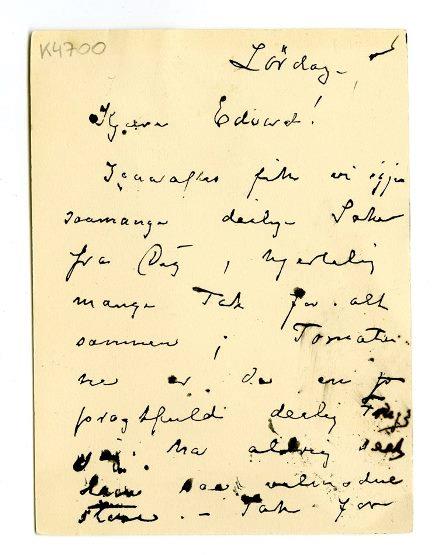 K4700
Lördag
Kjære Edvard!
Igaaraftes fik vi igjen
saamange deilige Saker
fra Dig, hjertelig
mange Tak for alt
sammen; Tomater
ne er da en
pragtfuld deilig Frugt
vi ha aldrig seet
saa velmodne
store. – Tak for